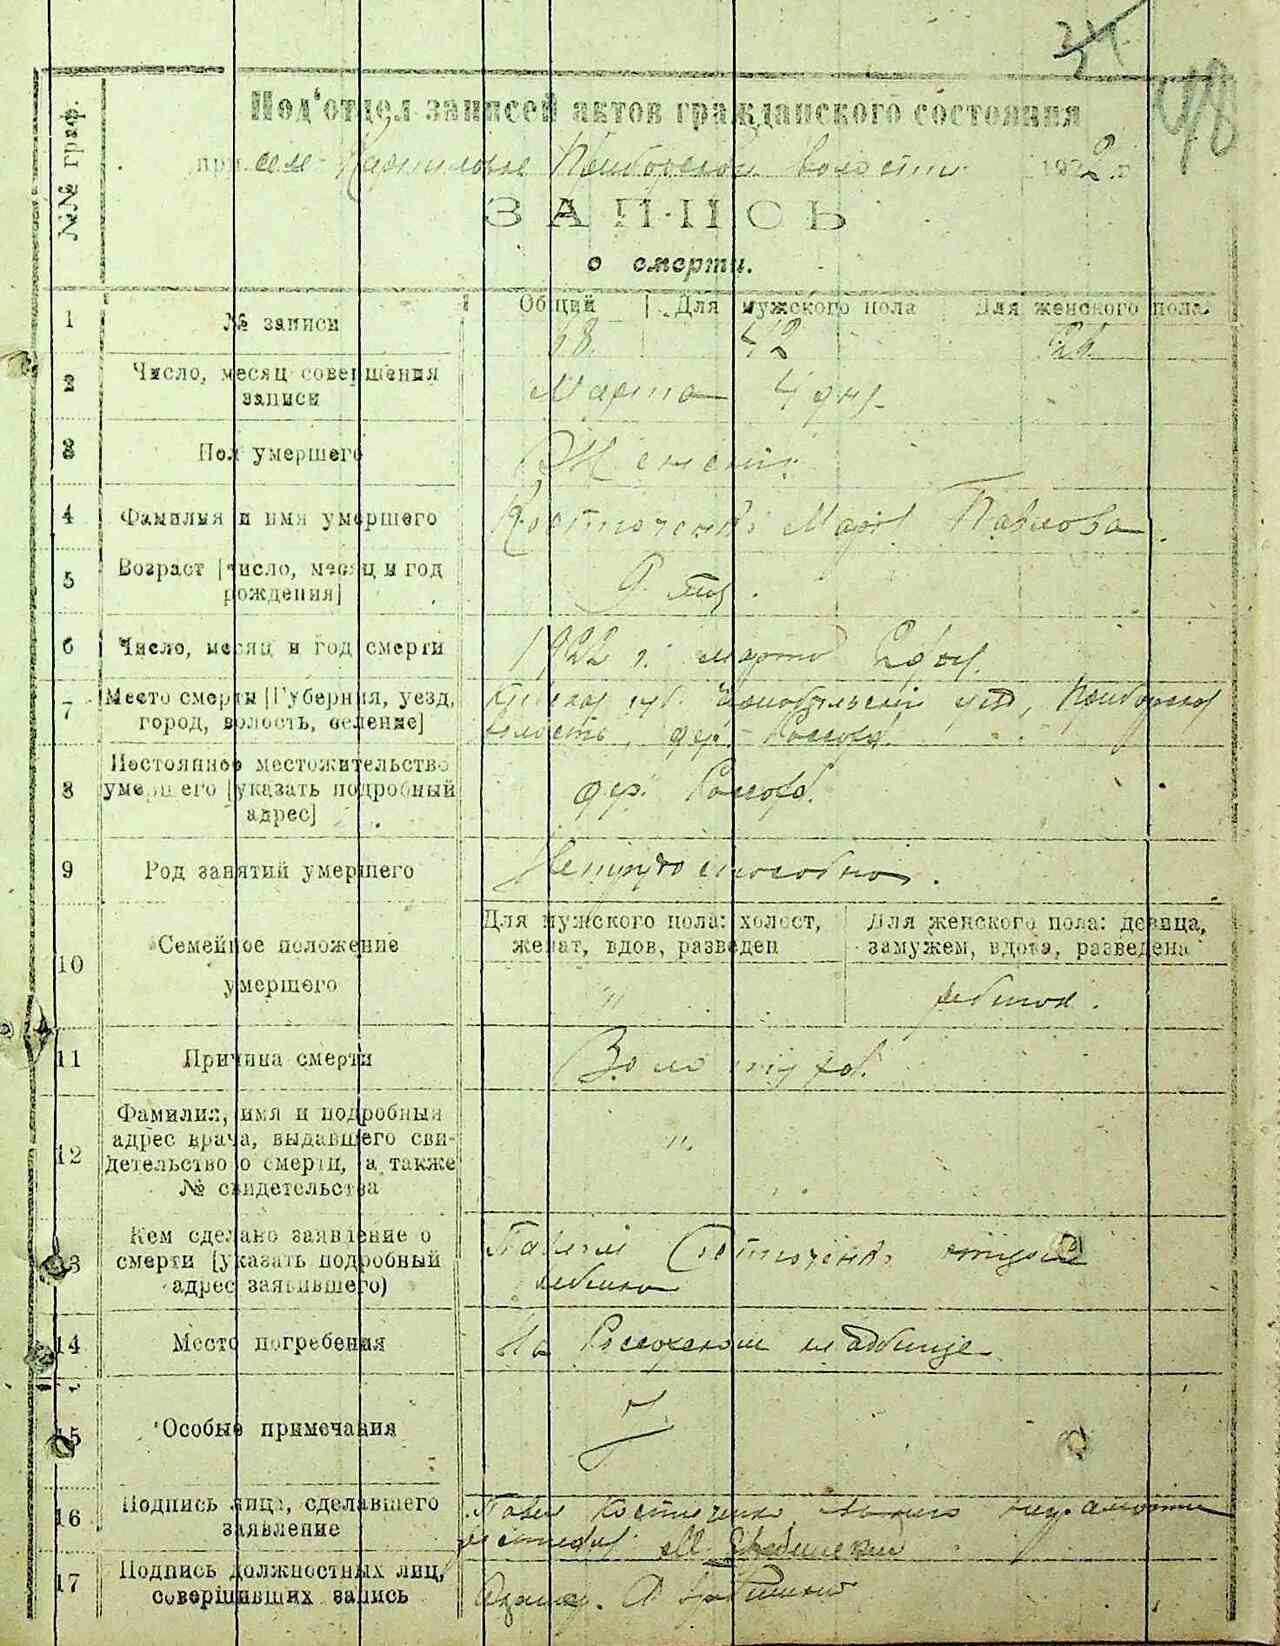 48
№№ граф.
Под'отдел записей актов гражданского состояния
при селе Приборской волости 1922 г.
ЗАПИСЬ
о смерти.
1 № записи
Общий Для мужского пола Для женского пола
68. 42 26
2 Число, месяц совершения
записи
Марта 4 дня
3 Пол умершего
Женский
4 Фамилия и имя умершего
Костюченко Мария Павлова.
5 Возраст [число, месяц и год
рождения]
9
6 Число, месяц и год смерти
1922 г. марта 2 дня.
7 Место смерти [Губерния, уезд,
город, волость, селение]
Киевская губ. Чернобыльский уезд, Приборской
волость, дер. Россоха
8 Постоянное местожительство
умершего [указать подробный
адрес]
дер. Россоха.
9 Род занятий умершего
Нетрудоспособная.
10 Семейное положение
умершего
Для мужского пола: холост,
женат, вдов, разведен
Для женского пола: девица,
замужем, вдова, разведена
"
11 Причина смерти
Золотуха.
12 Фамилия, имя и подробный
адрес врача, выдавшего сви-
детельство о смерти, а также
№ свидетельства
".
13 Кем сделано заявление о
смерти [указать подробный
адрес заявившего)
Павлом Костюченко отцом
14 Место погребения
На Россохском кладбище
15 Особые примечания
16 Подпись лица, сделавшего
заявление
Павел Костюченко неграмотный
17 Подпись должностных лиц,
совершивших запись